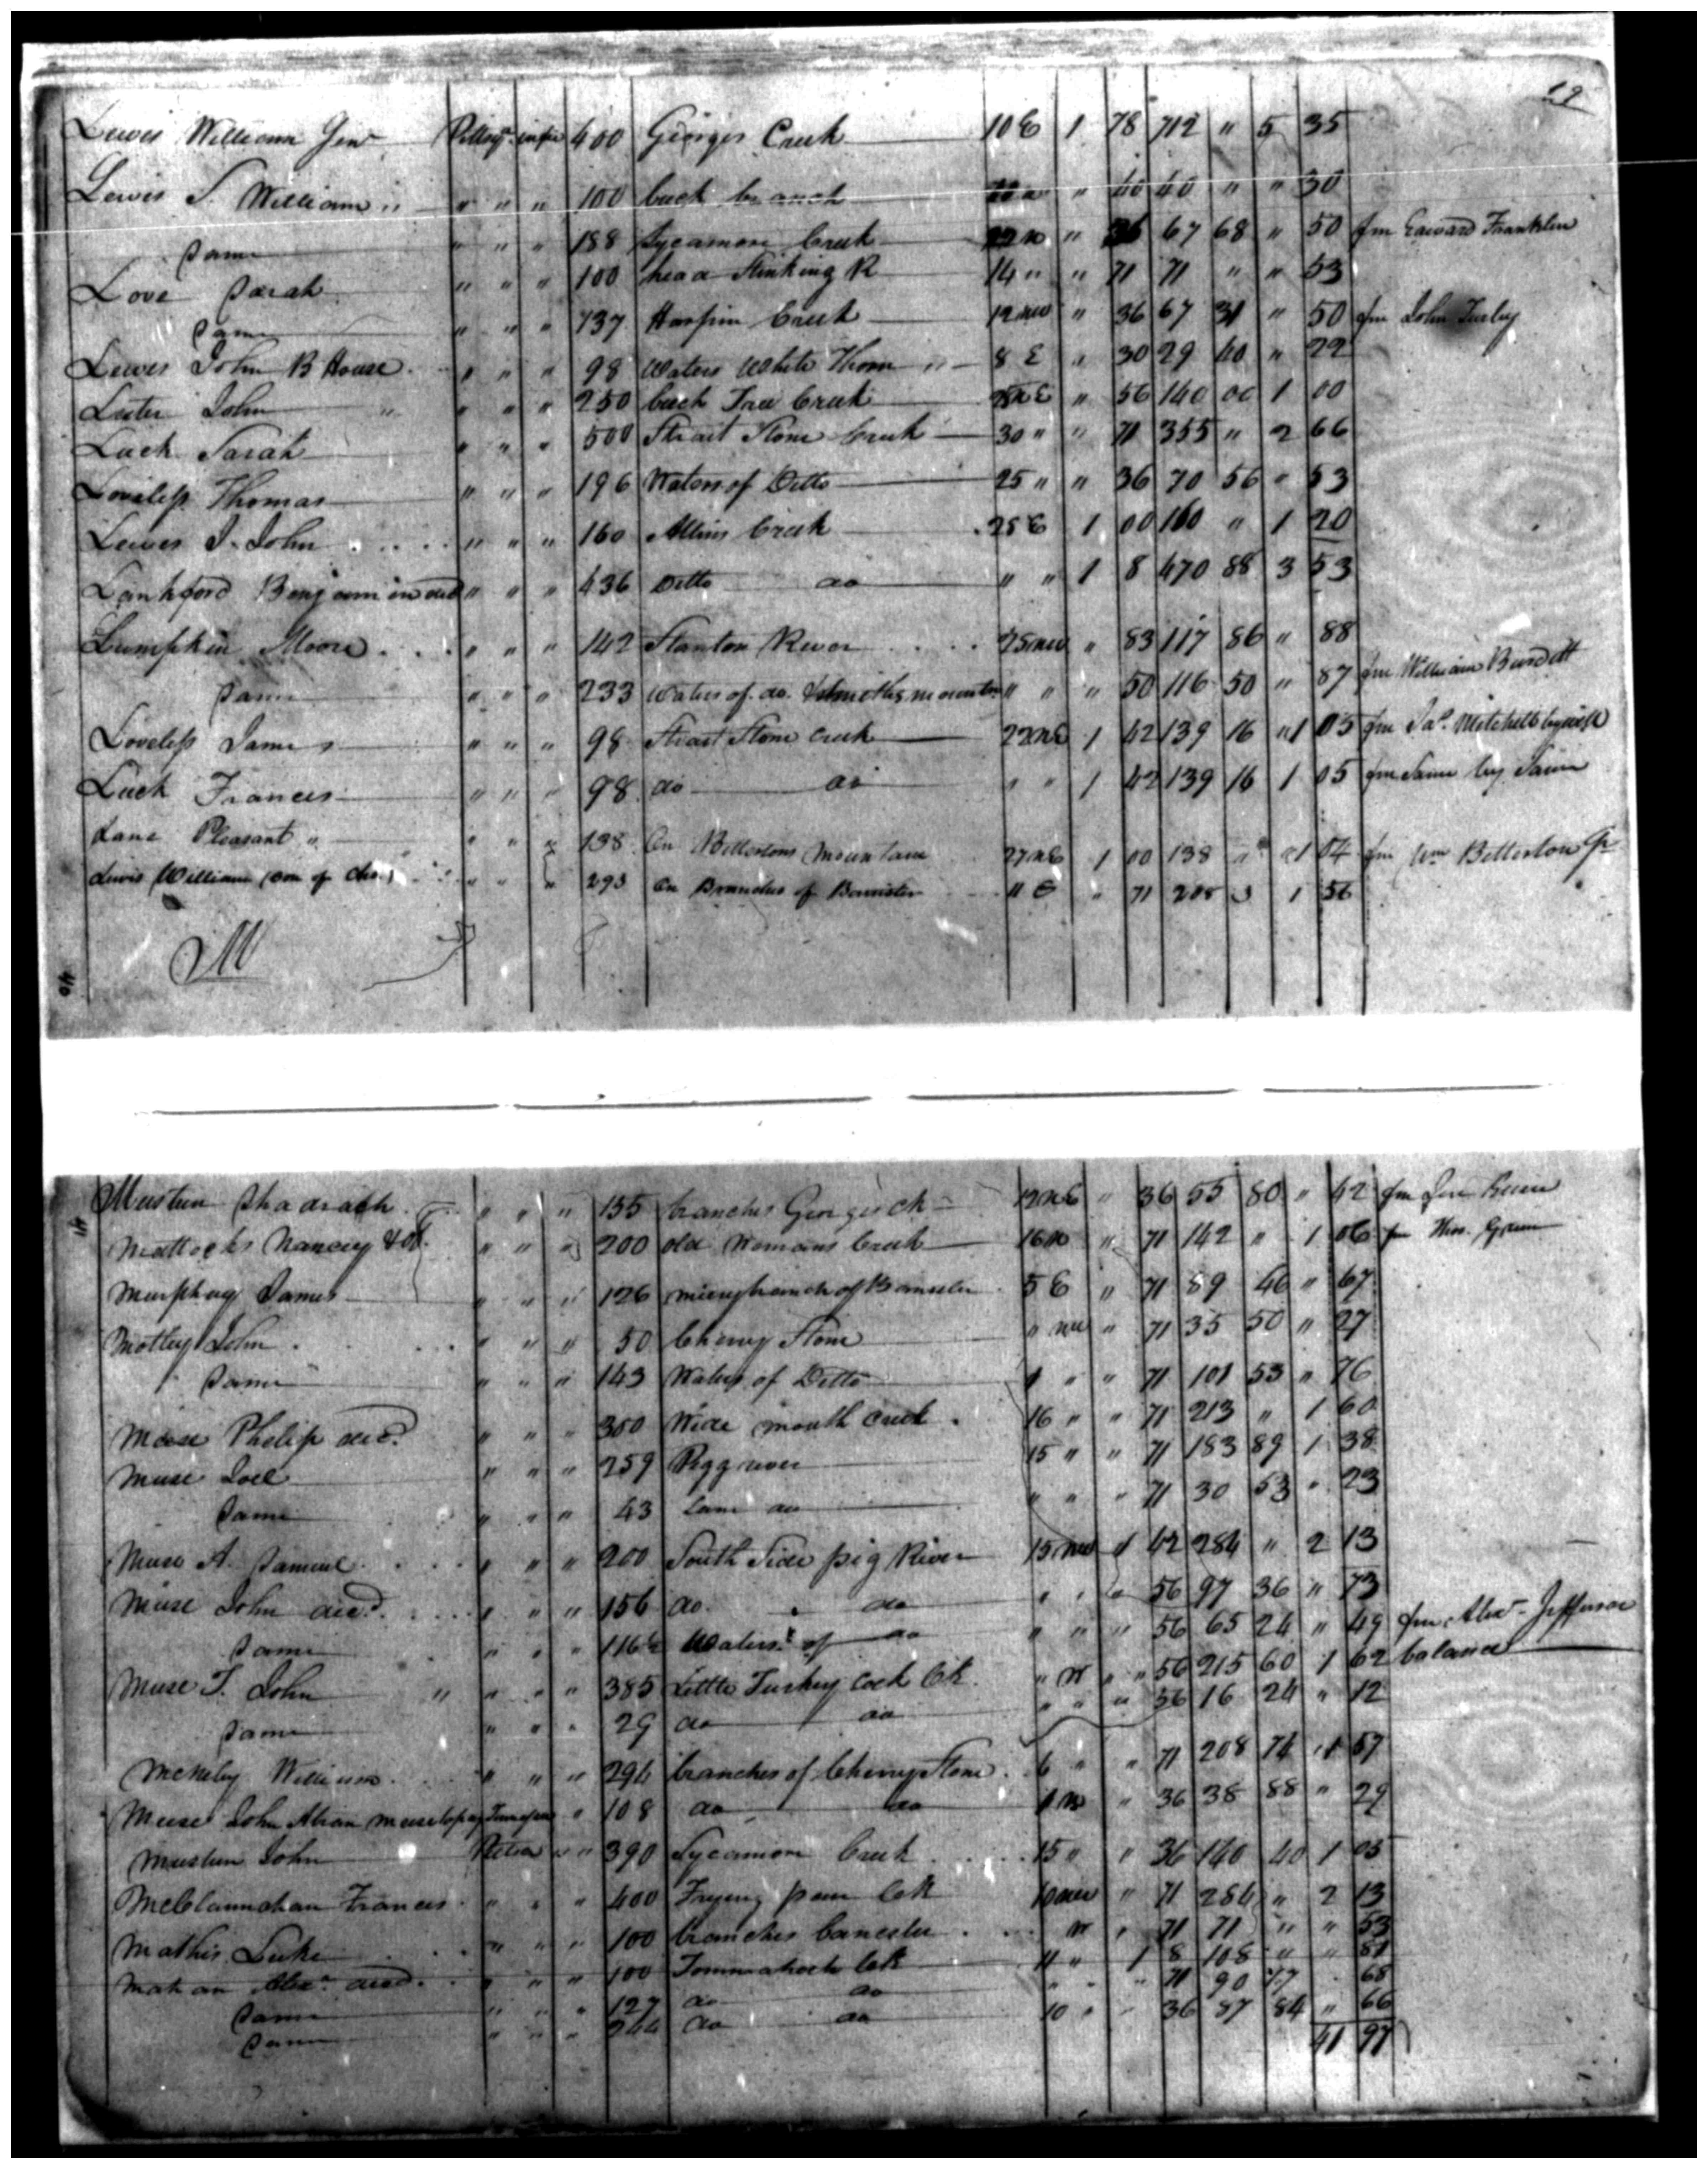 19
Lewis William Genr Pittsy. in fee 400 Georges Creek 10 E 1 78 712 " 5 35
Lewis S. William " " " " 100 back branch " 40 40 " " 30
Same " " " 188 Sycamore Creek " 36 67 68 " 50 fm Edward Franklin
Love Sarah " " " 100 head Stinking R 14 " " 71 71 " " 53
Same " " " 187 Harpin Creek 12 NW " 36 67 31 " 50 fm John
Lewis John B House " " " 98 Waters White Thorn " 8 E " 30 29 40 " 22
John " " " " 250 back Tree Creek NE " 56 140 00 1 00
Luck Sarah " " " 500 Strait Stone Creek 30 " " 71 355 " 2 66
Loveless Thomas " " " 196 Waters of Ditto 25 " " 36 70 56 " 53
Lewis J. John " " " 160 Allins Creek 25 E 1 00 160 " 1 20
Lankford Benjamin decd " " " 436 Ditto do " " 1 8 470 88 3 53
Lumpkin Moore " " " 142 Stanton River 25 NW " 83 117 86 " 88
Same " " " 233 Waters of do. & Smiths mountn " " " 50 116 50 " 87 fm William Burdett
Loveless James " " " 98 Strait Stone Creek 22 NE 1 42 139 16 " 1 05 fm Jas. Mitchells by wife
Luck Frances " " " 98 do do " " 1 42 139 16 1 05 fm Same by Same
Lane Pleasant " " " " 138 On Bettertons Mountain 27 NE 1 00 138 " 1 04 fm Wm Betterton Jr
Lewis William (son of Chs.) " " " 293 On Branches of Bannister 11 E " 71 208 3 1 56
M
40
41
Mustun Shadrach " " " 155 branches Georges Ck 12 NE " 36 55 80 " 42 fm
Mattocks Nancy & oth. " " " 200 old Womans Creek 16 N " 71 142 " 1 06 fm Thos. Green
Murphey James " " " 126 miery branch of Banister 5 E " 71 89 46 " 67
Motley John " " " 50 Cherry Stone " NW " 71 35 50 " 27
Same " " " 143 Waters of Ditto " " " 71 101 53 " 76
Muse Philip decd. " " " 300 Wide mouth Creek 16 " " 71 213 " 1 60
Muse Joel " " " 259 Pigg river 15 " " 71 183 89 1 38
Same " " " 43 Same do " " " 71 30 53 " 23
Muse A. Samuel " " " 200 South Side pig River 15 NW 1 42 284 " 2 13
Muse John decd. " " " 156 do. do " " " 56 97 36 " 73
Same " " " 116½ Waters of do " " " 56 65 24 " 49 fm Alexr. Jefferson
Muse T. John " " " " 385 Little Turkey Cock Ck " W " " 56 215 60 1 62 balance
Same " " " 29 do do " " " 56 16 24 " 12
McNeley William " " " 294 branches of Cherry Stone 6 " " 71 208 74 1 57
Muse John " 108 do do N " 36 38 88 " 29
Mustun John " " 390 Sycamore Creek 15 " " 36 140 40 1 05
McClannahan Frances " " " 400 Frying pan Ck 10 NW " 71 284 " 2 13
Mathis Luke " " " 100 branches banester W " 71 71 " " 53
Mahan Alexr. decd. " " " 100 Tommahock Ck 11 " 1 8 108 " " 81
Same " " " 127 do do " " " 71 90 17 " 68
Same " " " 244 do do 10 " " 36 87 84 " 66
41 97